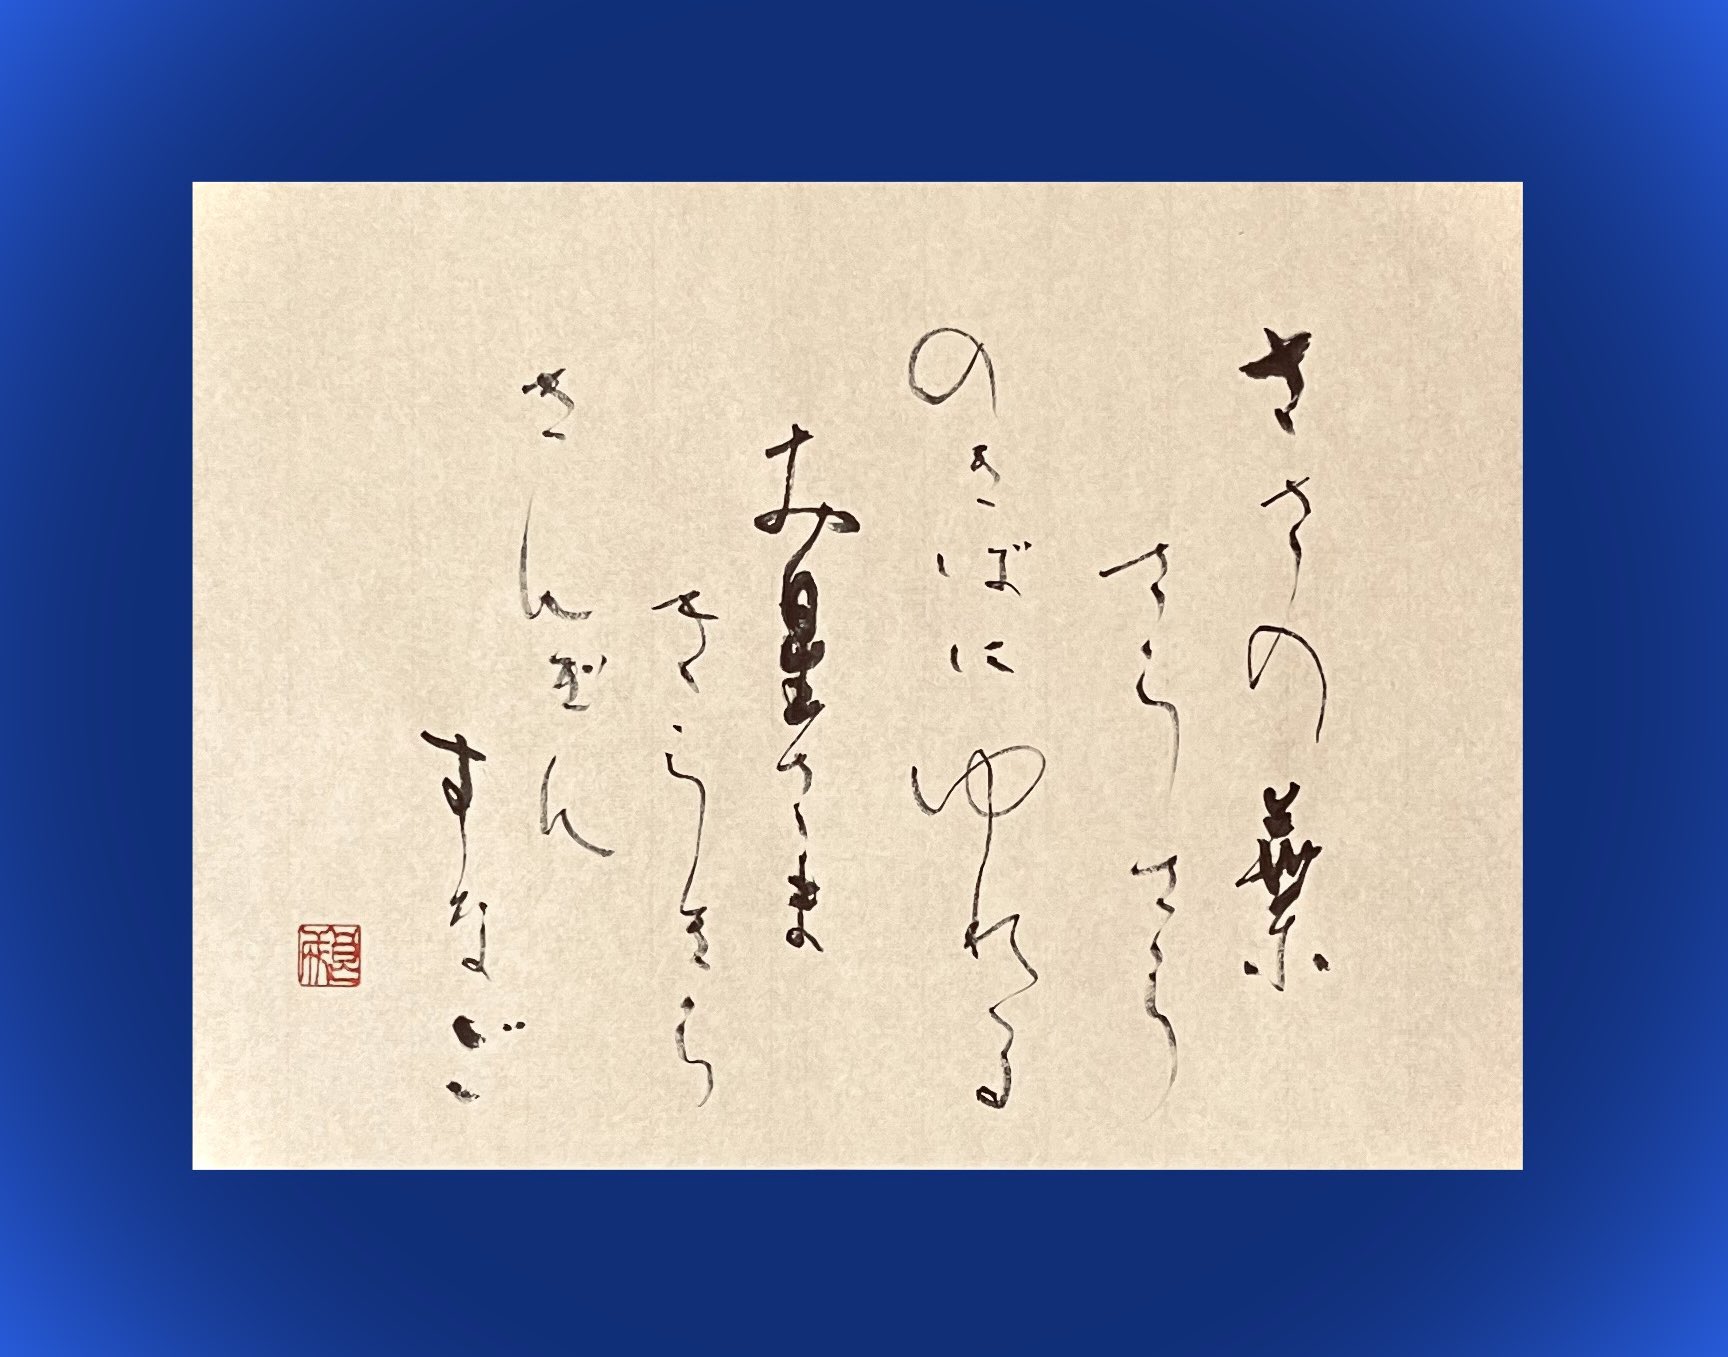 ささの葉
さらさら
のきばにゆれる
お星さま
きらきら
きんぎん
すなご